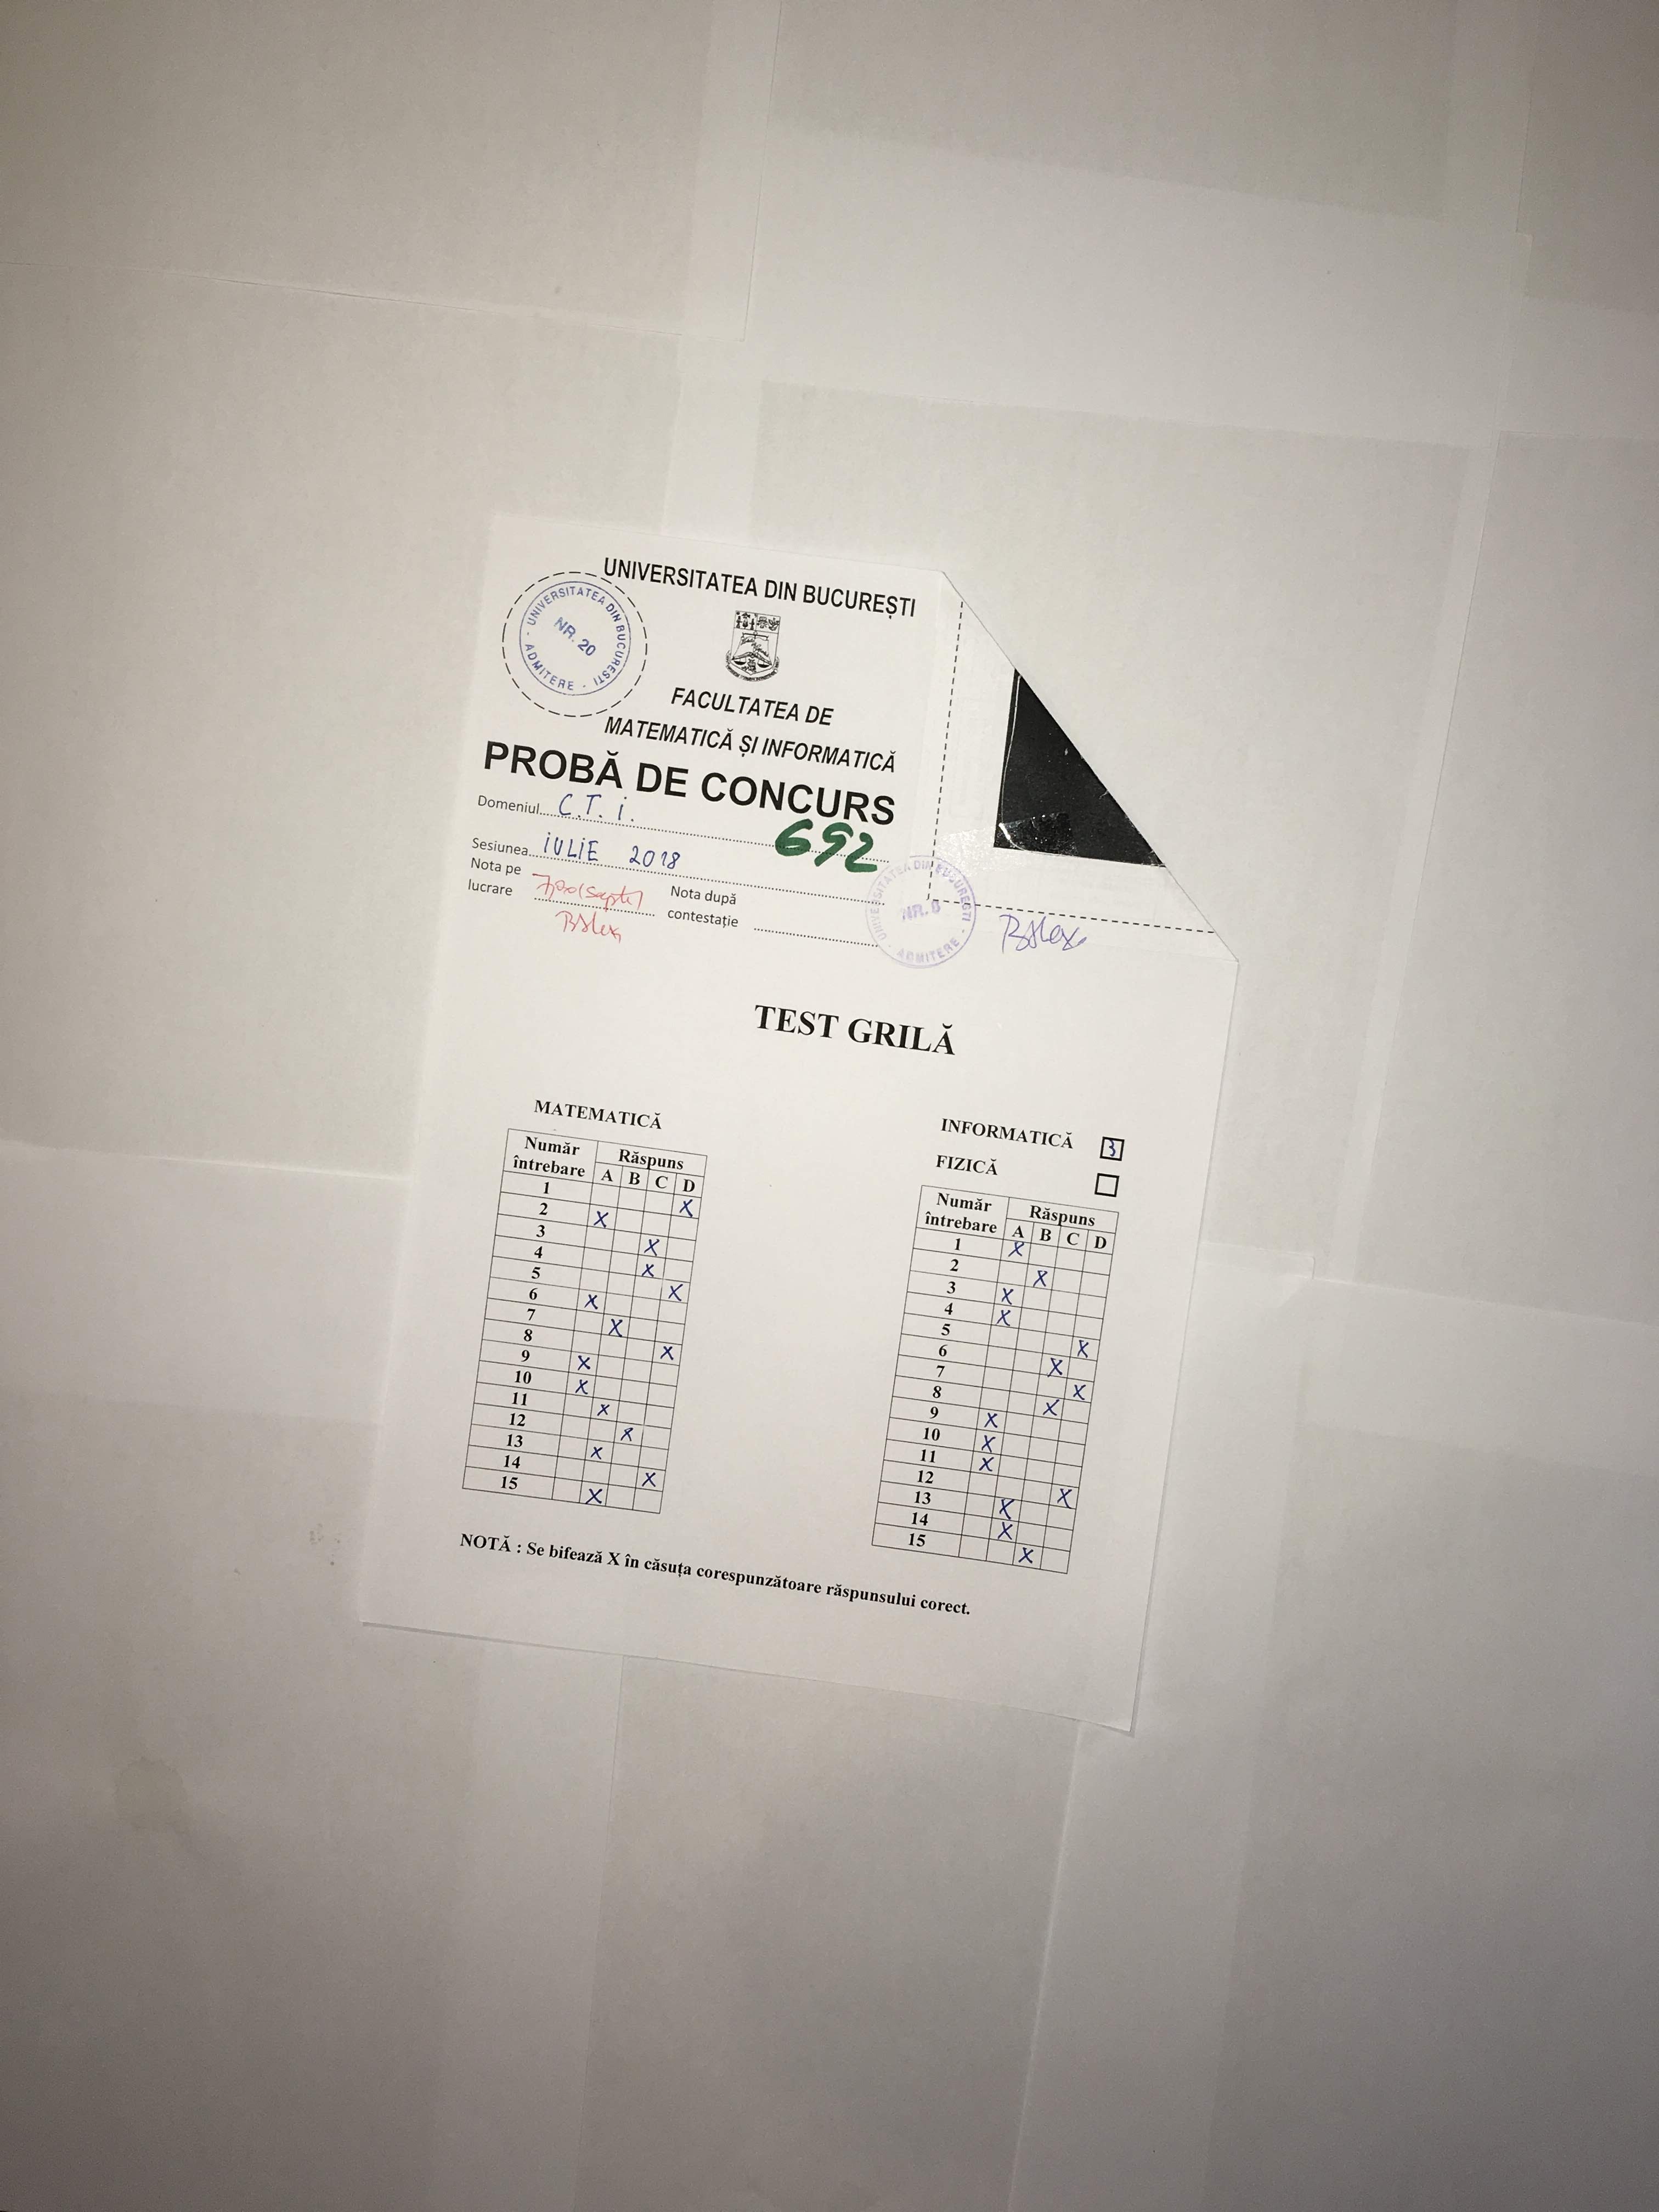 UNIVERSITATEA DIN BUCUREȘTI
UNIVERSITATEA DIN BUCUREȘTI
NR. 20
· ADMITERE ·
FACULTATEA DE
MATEMATICĂ ȘI INFORMATICĂ
PROBĂ DE CONCURS
Domeniul....C.T.i.
692
Sesiunea...iULiE 2018
Nota pe
lucrare
7,00 (șapte)
Nota după
contestație
UNIVERSITATEA DIN BUCUREȘTI
NR. 6
· ADMITERE ·
TEST GRILĂ
MATEMATICĂ
Număr întrebare Răspuns
A B C D
1 X
2 X
3 X
4 X
5 X
6 X
7 X
8 X
9 X
10 X
11 X
12 X
13 X
14 X
15 X
INFORMATICĂ 3
FIZICĂ
Număr întrebare Răspuns
A B C D
1 X
2 X
3 X
4 X
5 X
6 X
7 X
8 X
9 X
10 X
11 X
12 X
13 X
14 X
15 X
NOTĂ : Se bifează X în căsuța corespunzătoare răspunsului corect.